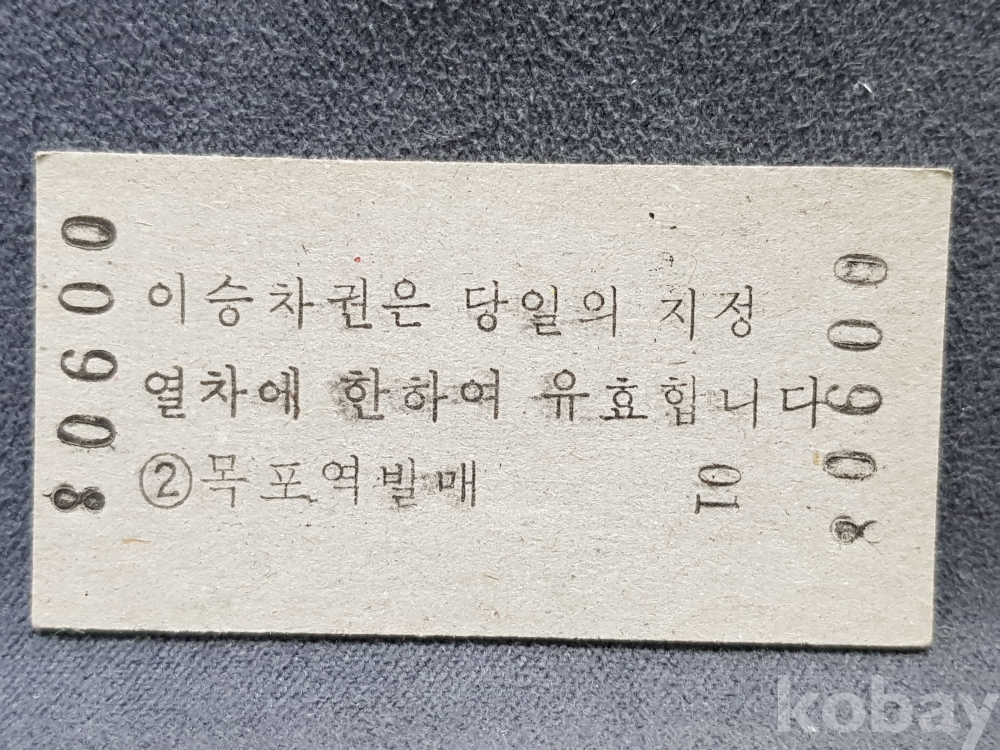 이승차권은 당일의 지정
열차에 한하여 유효합니다
②목포역발매
10
80600
80600
kobay